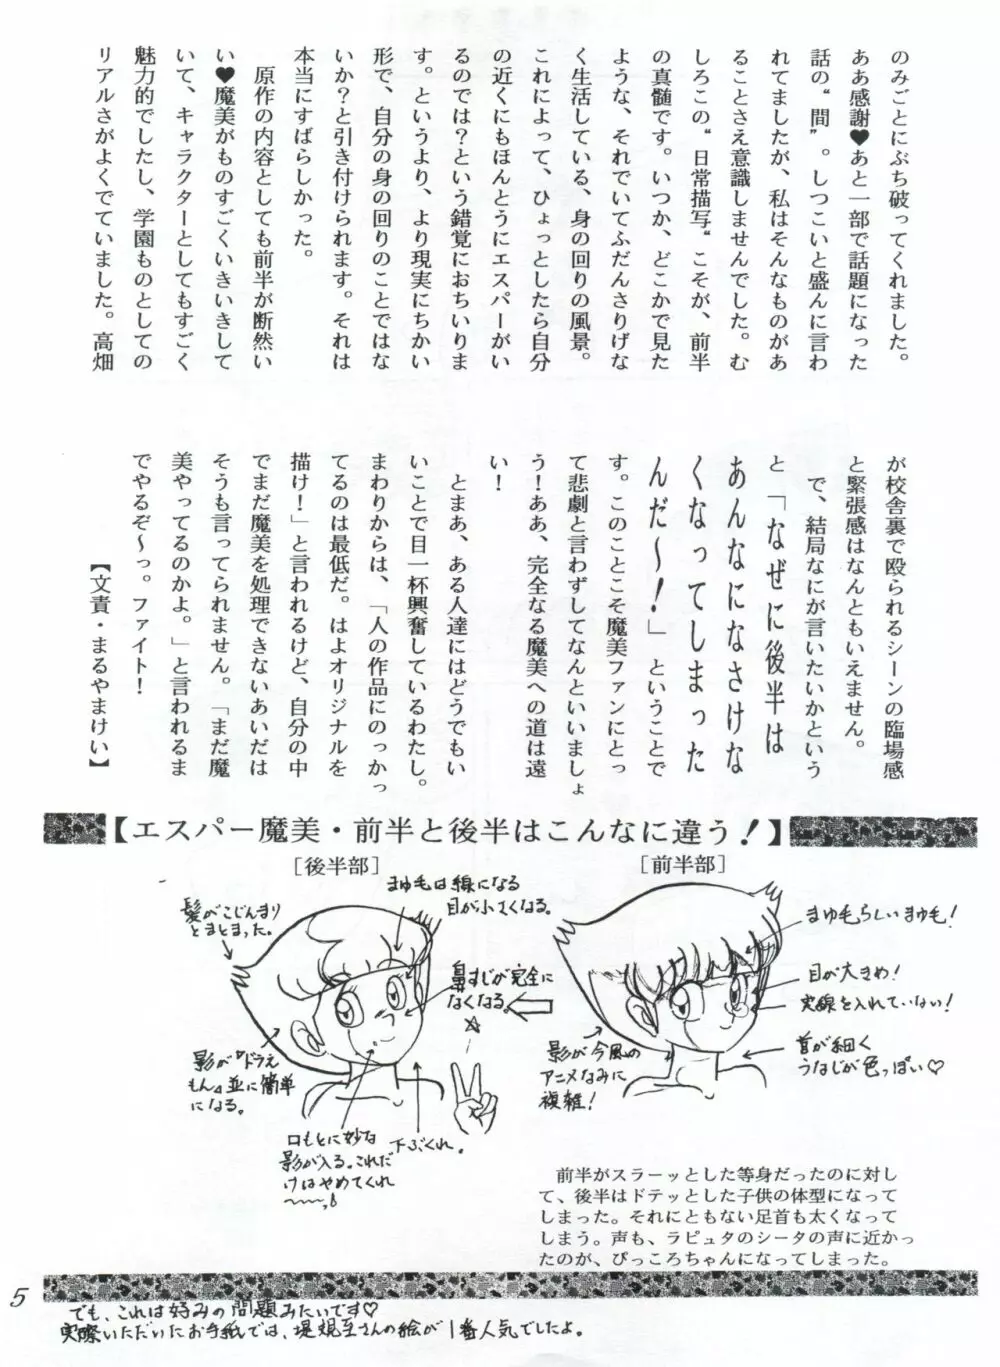 のみごとにぶち破ってくれました。
ああ感謝♥あと一部で話題になった
話の“間”。しつこいと盛んに言わ
れてましたが、私はそんなものがあ
ることさえ意識しませんでした。む
しろこの“日常描写“こそが、前半
の真髄です。いつか、どこかで見た
ような、それでいてふだんさりげな
く生活している、身の回りの風景。
これによって、ひょっとしたら自分
の近くにもほんとうにエスパーがい
るのでは？という錯覚におちいりま
す。というより、より現実にちかい
形で、自分の身の回りのことではな
いか？と引き付けられます。それは
本当にすばらしかった。
　原作の内容としても前半が断然い
い♥魔美がものすごくいきいきして
いて、キャラクターとしてもすごく
魅力的でしたし、学園ものとしての
リアルさがよくでていました。高畑
が校舎裏で殴られるシーンの臨場感
と緊張感はなんともいえません。
　で、結局なにが言いたいかという
と「なぜに後半は
あんなになさけな
くなってしまった
んだ～！」ということで
す。このことこそ魔美ファンにとっ
て悲劇と言わずしてなんといいましょ
う！ああ、完全なる魔美への道は遠
い！
　とまあ、ある人達にはどうでもい
いことで目一杯興奮しているわたし。
まわりからは、「人の作品にのっかっ
てるのは最低だ。はよオリジナルを
描け！」と言われるけど、自分の中
でまだ魔美を処理できないあいだは
そうも言ってられません。「まだ魔
美やってるのかよ。」と言われるま
でやるぞ～っ。ファイト！
【文責・まるやまけい】
【エスパー魔美・前半と後半はこんなに違う！】
［前半部］
まゆ毛らしいまゆ毛！
目が大きめ！
実線を入れていない！
首が細く
うなじが色っぽい♡
影が今風の
アニメなみに
複雑！
［後半部］
まゆ毛は線になる
目が小さくなる。
髪がこじんまり
とまとまった。
鼻すじが完全に
なくなる。
影が『ドラえ
もん』並に簡単
になる。
口もとに妙な
影が入る。これだ
けはやめてくれ
～～～っ
下ぶくれ。
　前半がスラーッとした等身だったのに対し
て、後半はドテッとした子供の体型になって
しまった。それにともない足首も太くなって
しまう。声も、ラピュタのシータの声に近かっ
たのが、ぴっころちゃんになってしまった。
でも、これは好みの問題みたいです♡
実際いただいたお手紙では、堤規至さんの絵が1番人気でしたよ。
5